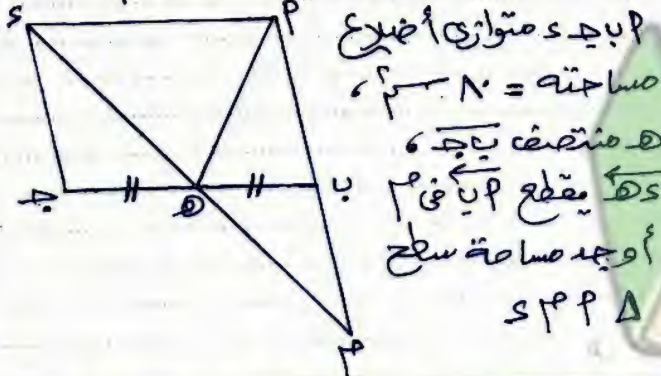 أ ب جـ د متوازى أضلاع
مساحته = ٨٠ سم٢،
هـ منتصف ب جـ،
د هـ يقطع أ ب فى م
أوجد مساحة سطح
Δ أ م د
د
أ
جـ
هـ
ب
م